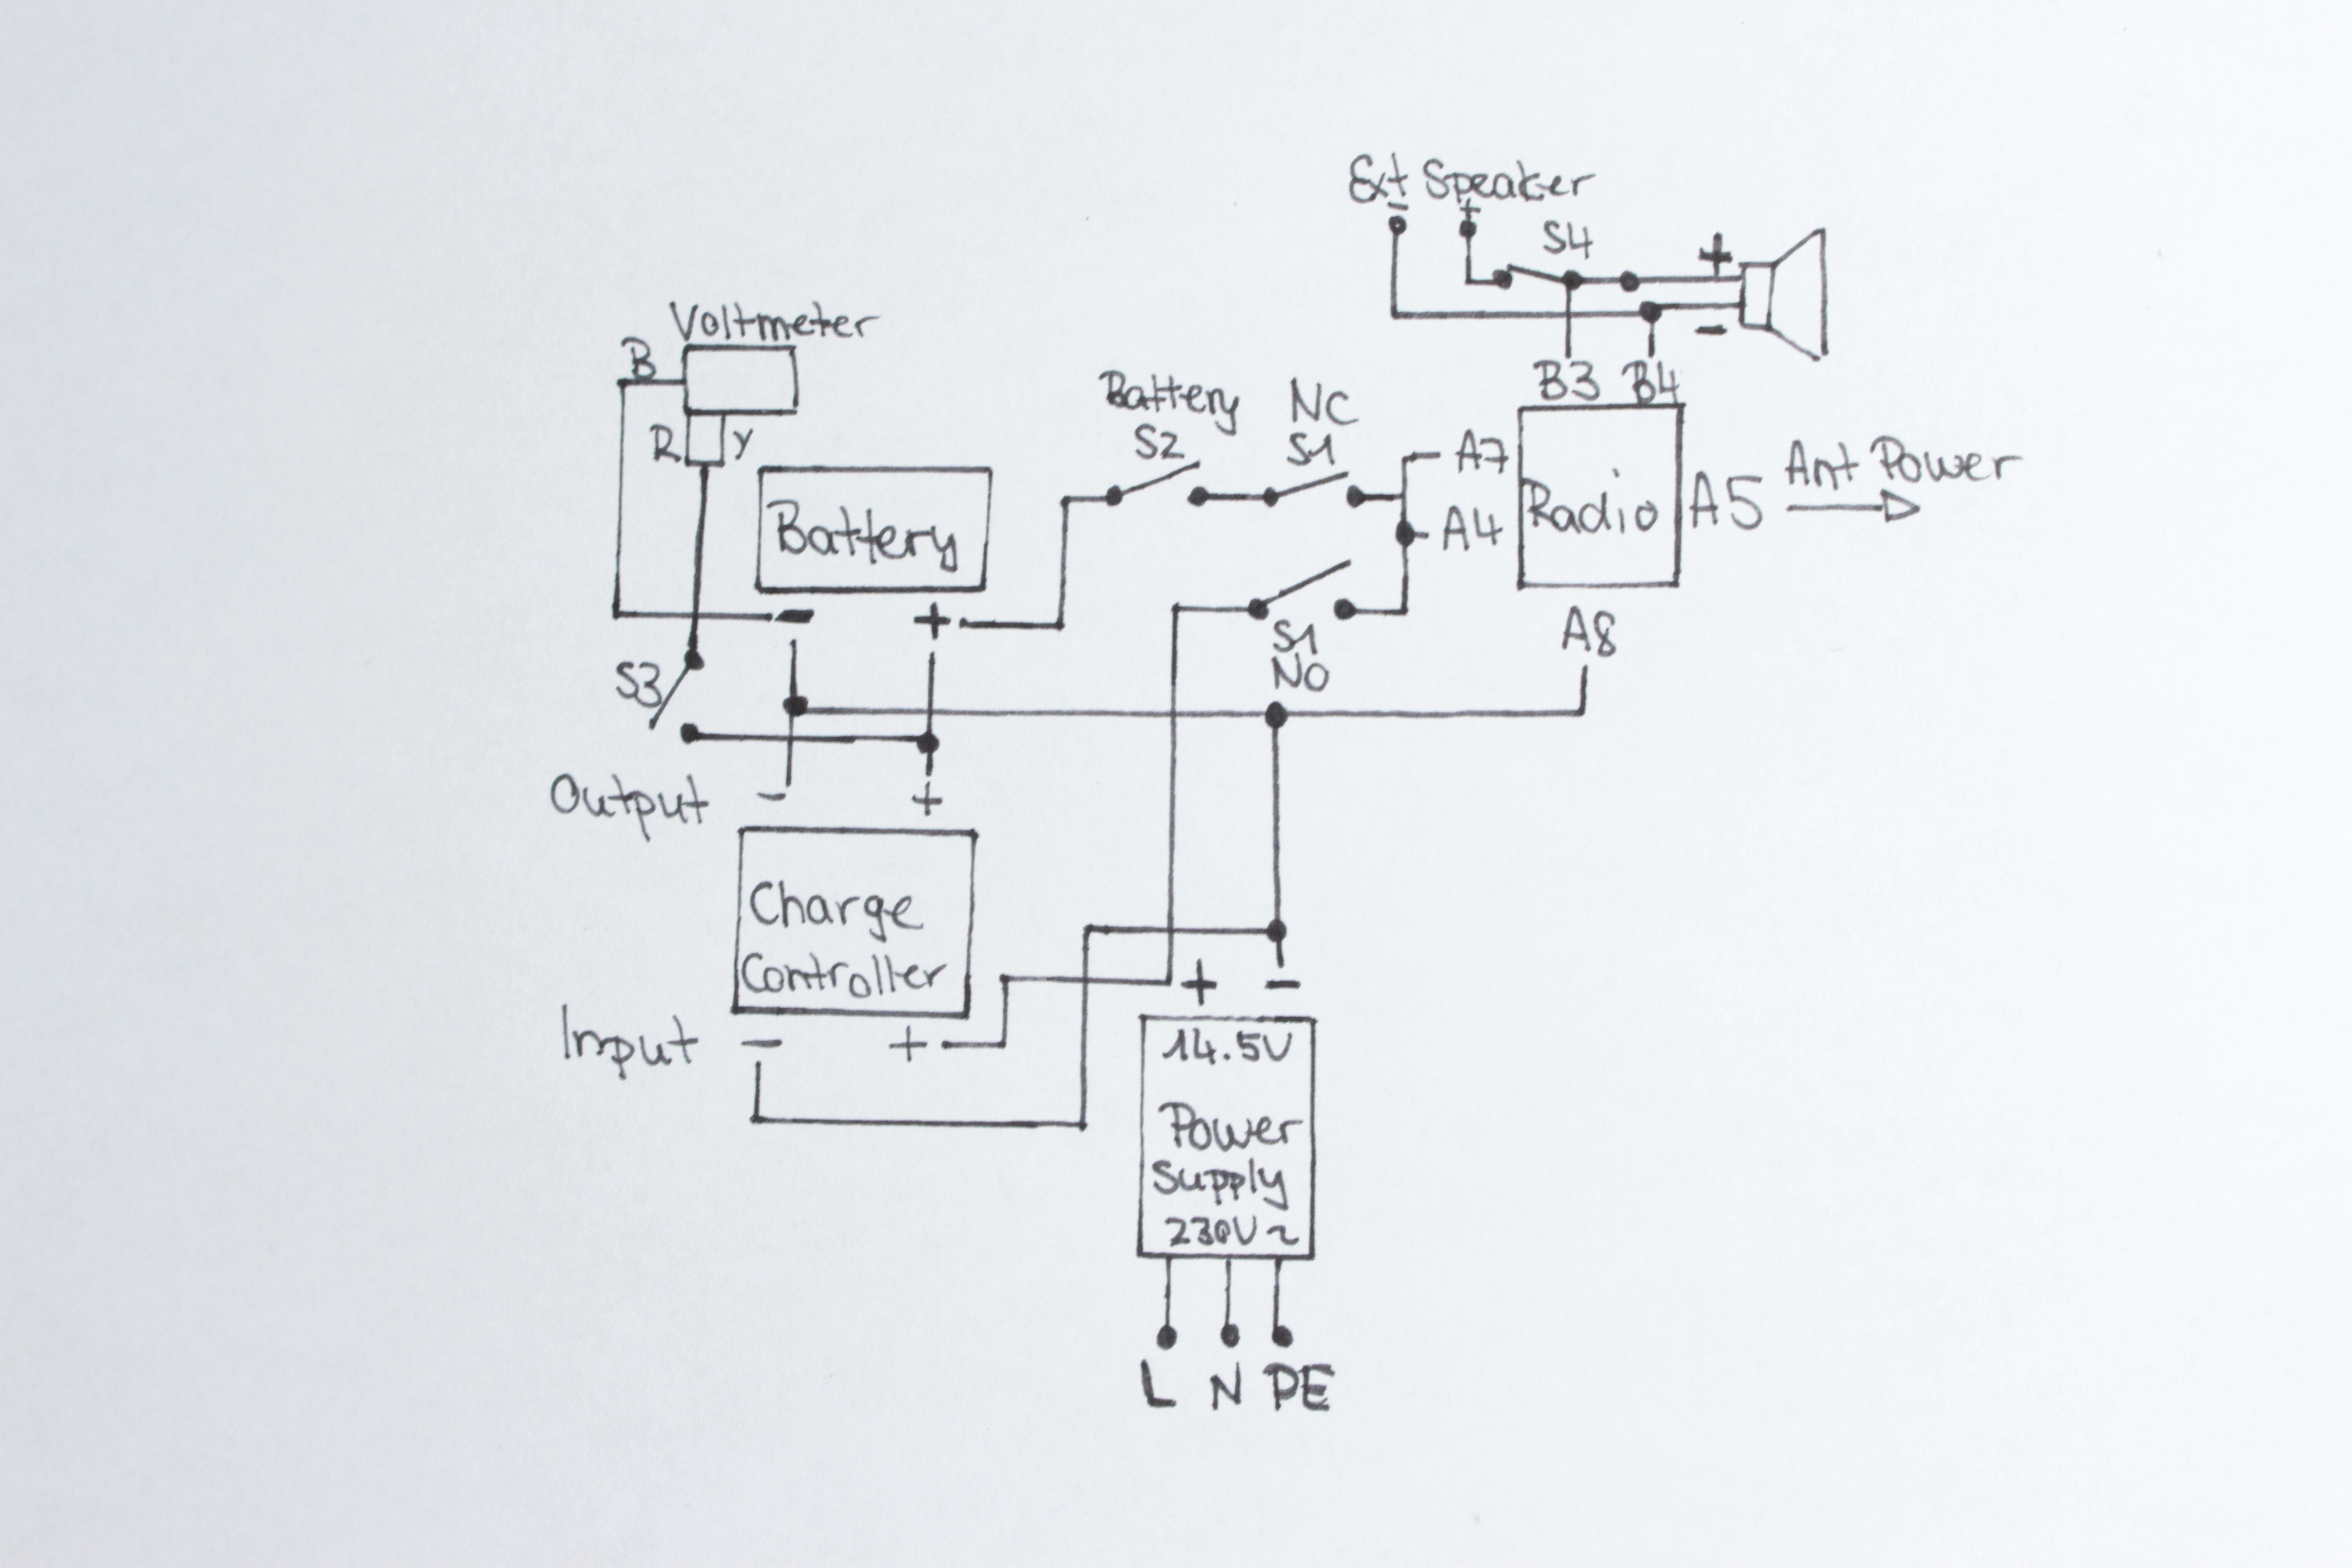 Ext Speaker
- +
S4
+
-
Voltmeter
B
R Y
B3 B4
Battery
S2
NC
S1
A7
A4
Radio
A5
Ant Power
Battery
- +
S1
NO
A8
S3
Output - +
Charge
Controller
Input - +
+ -
14.5V
Power
Supply
230V~
L N PE